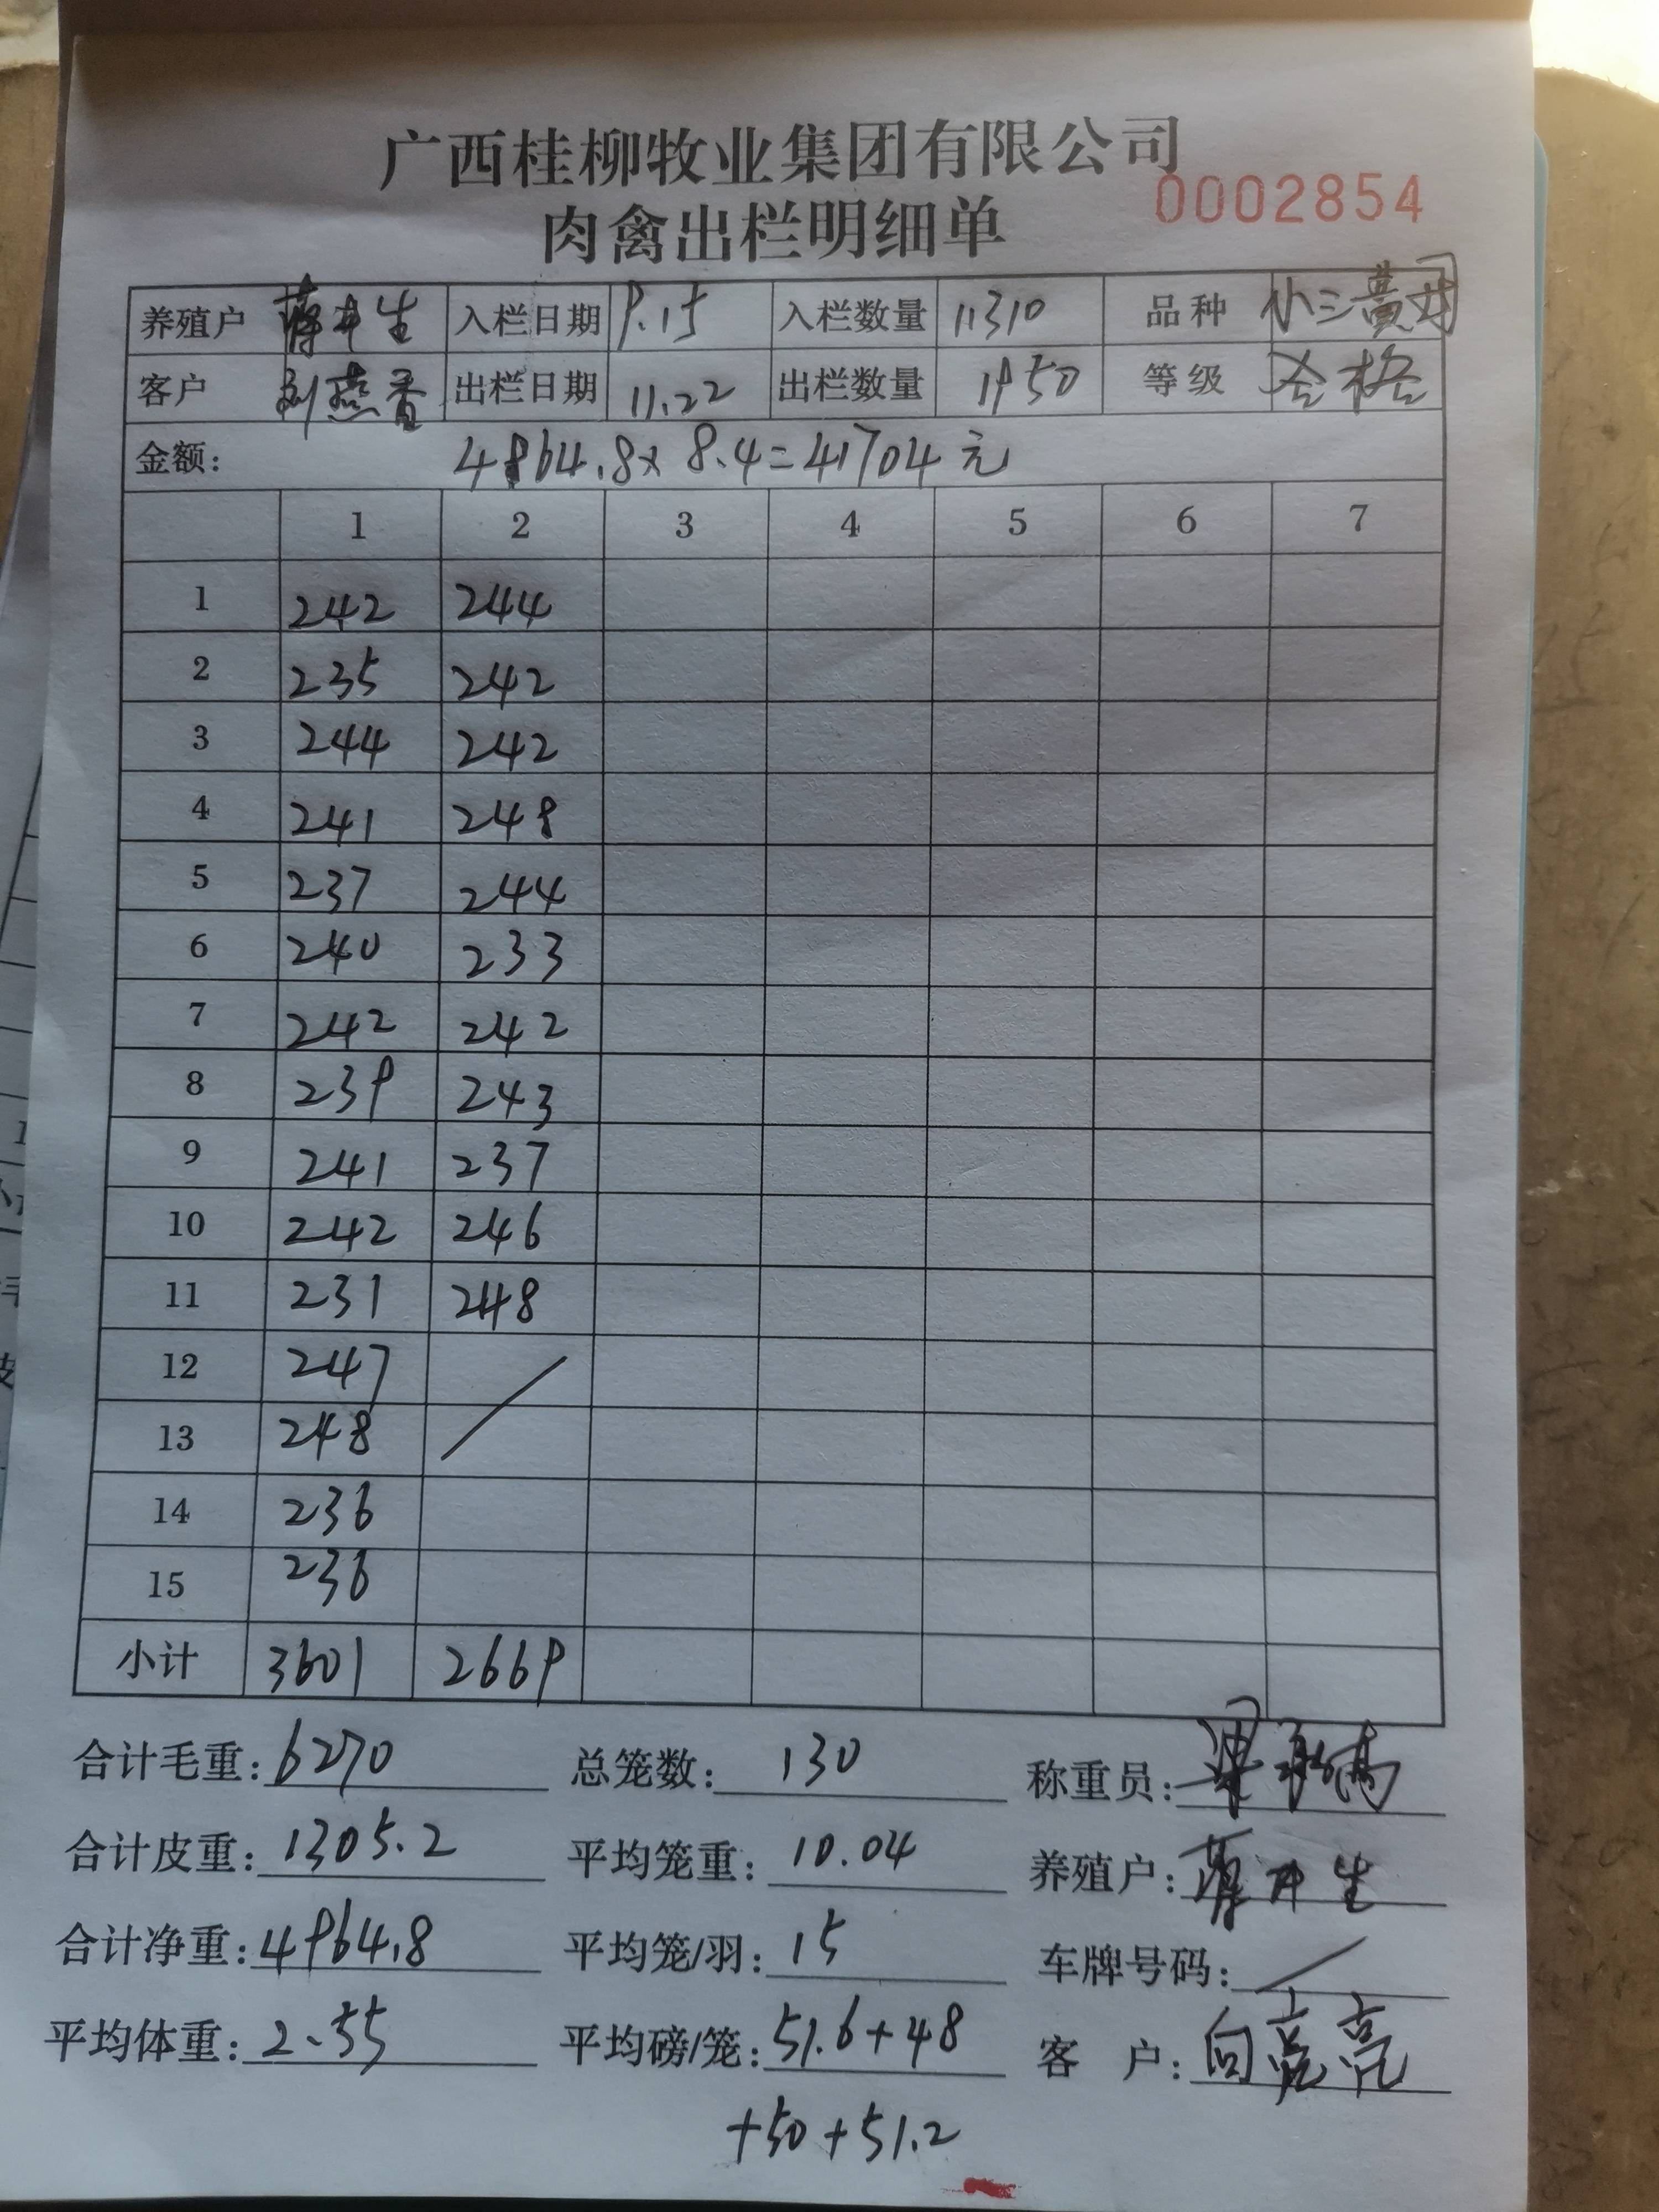 广西桂柳牧业集团有限公司
0002854
肉禽出栏明细单
养殖户 蒋井生 入栏日期 9.15 入栏数量 11310 品种 小三黄母
客户 刘燕香 出栏日期 11.22 出栏数量 1950 等级 合格
金额: 4964.8×8.4=41704元
1 2 3 4 5 6 7
1 242 244
2 235 242
3 244 242
4 241 248
5 237 244
6 240 233
7 242 242
8 239 243
9 241 237
10 242 246
11 231 248
12 247
13 248
14 236
15 236
小计 3601 2669
合计毛重: 6270 总笼数: 130 称重员:
合计皮重: 1305.2 平均笼重: 10.04 养殖户: 蒋井生
合计净重: 4964.8 平均笼/羽: 15 车牌号码: /
平均体重: 2.55 平均磅/笼: 51.6+48 客 户: 向亮亮
+50+51.2